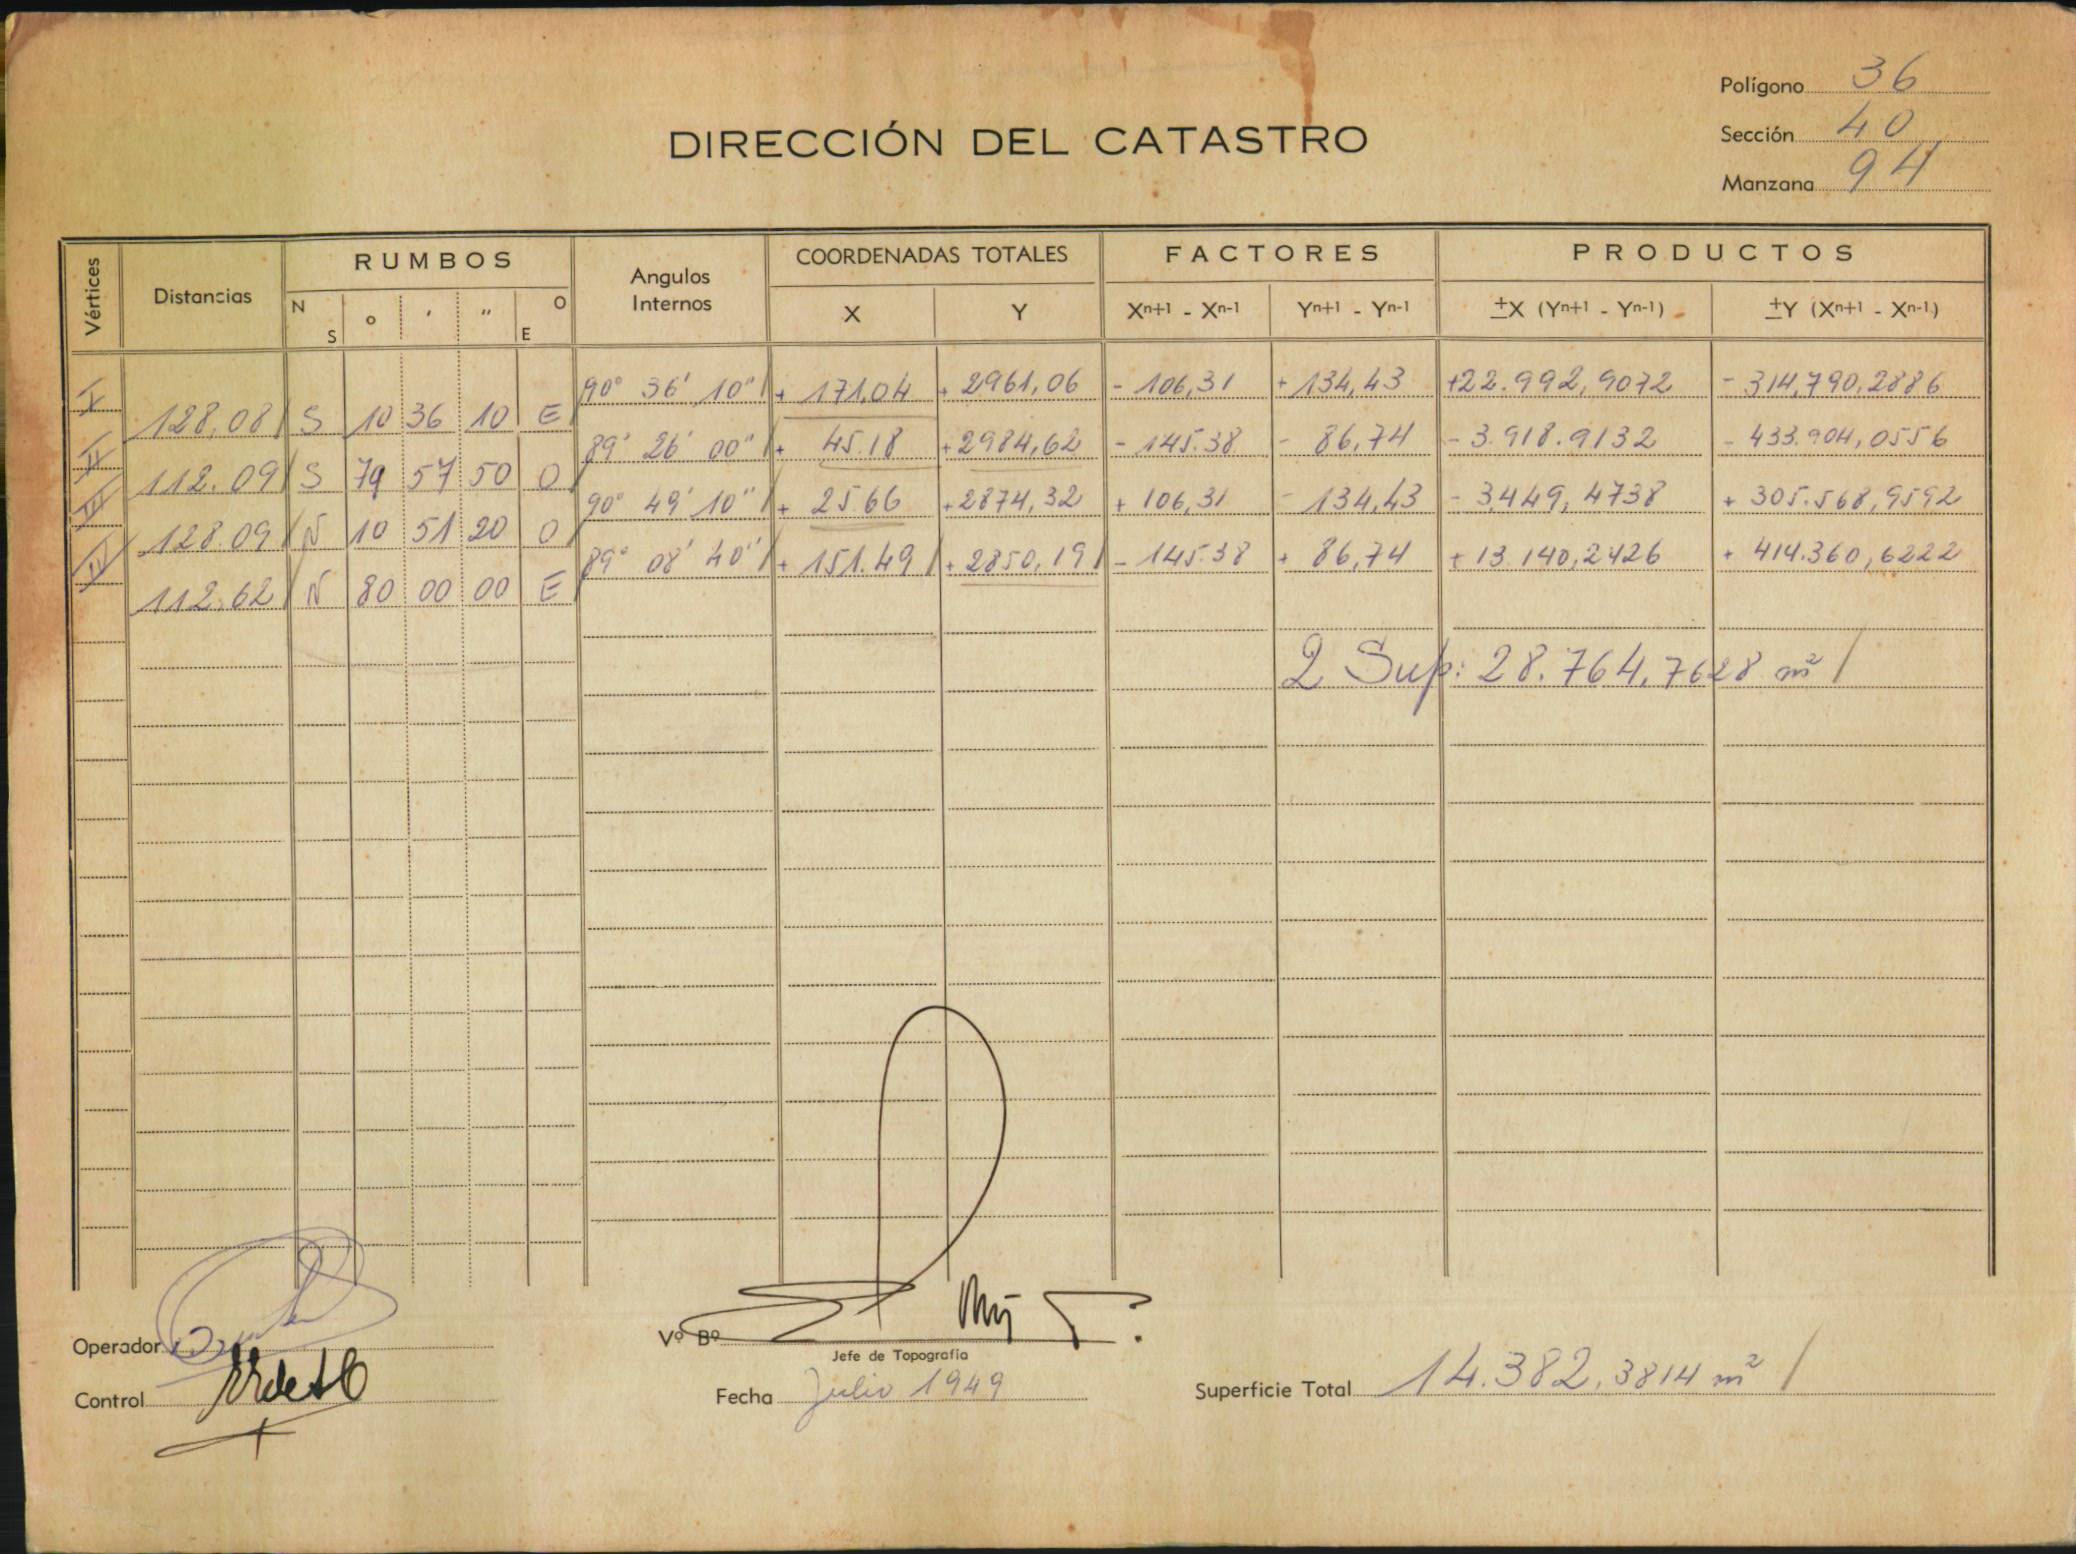 Polígono 36
DIRECCIÓN DEL CATASTRO
Sección 40
Manzana 94
Vértices Distancias RUMBOS Angulos Internos COORDENADAS TOTALES FACTORES PRODUCTOS
N S o ' " E O X Y Xn+1 - Xn-1 Yn+1 - Yn-1 ±X (Yn+1 - Yn-1) ±Y (Xn+1 - Xn-1)
I 90° 36' 10" + 171,04 + 2961,06 - 106,31 + 134,43 +22.992,9072 - 314,790,2886
128,08 S 10 36 10 E
II 89° 26' 00" + 45.18 +2984,62 - 145.38 - 86,74 - 3.918.9132 - 433.904,0556
112.09 S 79 57 50 O
III 90° 49' 10" + 25.66 +2874,32 + 106,31 - 134,43 - 3449,4738 + 305.568,9592
128.09 N 10 51 20 O
IV 89° 08' 40" + 151.49 + 2850,19 - 145.38 + 86,74 + 13.140,2426 + 414.360,6222
112.62 N 80 00 00 E
2 Sup: 28.764,7628 m²
Operador
Vº Bº
Jefe de Topografía
Control
Fecha Julio 1949
Superficie Total 14.382,3814 m²